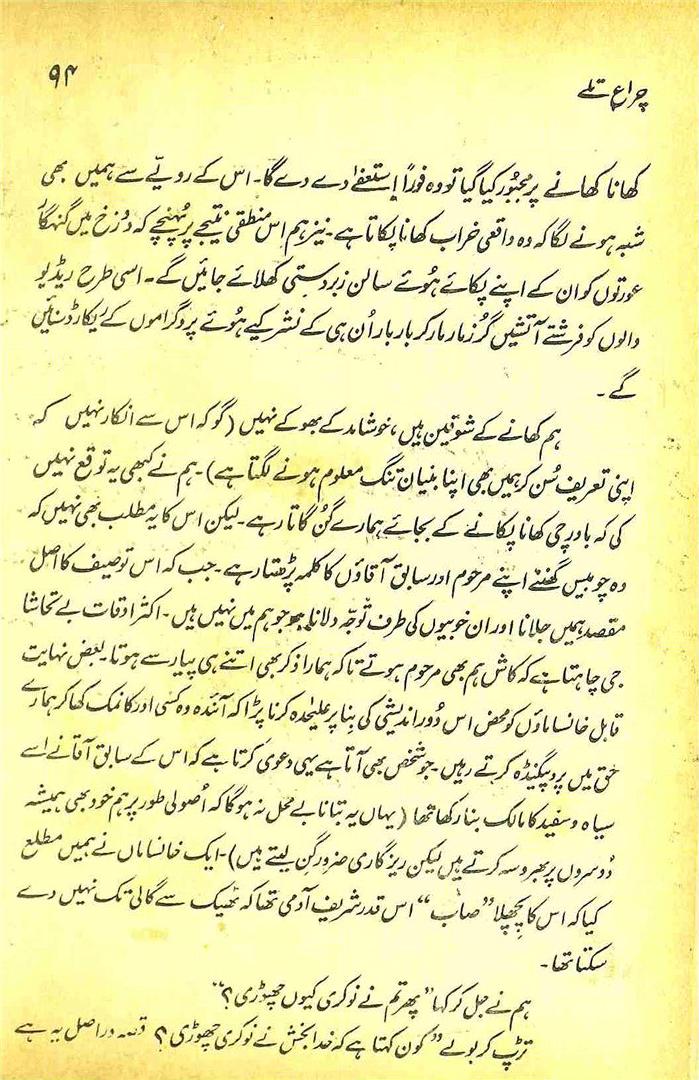 چراغ تلے
۹۴
کھانا کھانے پر مجبور کیا گیا تو وہ فوراً اِستعفےٰ دے دے گا۔ اس کے رویّے سے ہمیں بھی
شبہ ہونے لگا کہ وہ واقعی خراب کھانا پکاتا ہے۔ نیز ہم اس منطقی نتیجے پر پُہنچے کہ دُزخ میں گنہگار
عورتوں کو ان کے اپنے پکائے ہُوئے سالن زبردستی کھلائے جائیں گے۔ اسی طرح ریڈیو
والوں کو فرشتے آتشیں گُرز مار مار کر بار بار اُن ہی کے نشر کیے ہُوئے پروگراموں کے ریکارڈ سنائیں
گے۔
ہم کھانے کے شوقین ہیں، خوشامد کے بھوکے نہیں (گو کہ اس سے انکار نہیں کہ
اپنی تعریف سُن کر ہمیں بھی اپنا بنیان تنگ معلوم ہونے لگتا ہے)۔ ہم نے کبھی یہ توقع نہیں
کی کہ باورچی کھانا پکانے کے بجائے ہمارے گُن گاتا رہے۔ لیکن اس کا یہ مطلب بھی نہیں کہ
وہ چوبیس گھنٹے اپنے مرحوم اور سابق آقاؤں کا کلمہ پڑھتا رہے۔ جب کہ اس توصیف کا اصل
مقصد ہمیں جلانا اور ان خوبیوں کی طرف توجّہ دلانا ہو جو ہم میں نہیں ہیں۔ اکثر اوقات بے تحاشا
جی چاہتا ہے کہ کاش ہم بھی مرحوم ہوتے تاکہ ہمارا ذکر بھی اتنے ہی پیار سے ہوتا۔ بعض نہایت
قابل خانساماؤں کو محض اس دُور اندیشی کی بِنا پر علیٰحدہ کرنا پڑا کہ آئندہ وہ کسی اور کا نمک کھا کر ہمارے
حق میں پروپیگنڈہ کرتے رہیں۔ جو شخص بھی آتا ہے یہی دعویٰ کرتا ہے کہ اس کے سابق آقا نے اسے
سیاہ و سفید کا مالک بنا رکھا تھا (یہاں یہ بتانا بے محل نہ ہوگا کہ اُصولی طور پر ہم خود بھی ہمیشہ
دُوسروں پر بھروسہ کرتے ہیں لیکن ریزگاری ضرور گِن لیتے ہیں)۔ ایک خانساماں نے ہمیں مطلع
کیا کہ اس کا پچھلا ”صاب“ اس قدر شریف آدمی تھا کہ ٹھیک سے گالی تک نہیں دے
سکتا تھا۔
ہم نے جل کر کہا ”پھر تم نے نوکری کیوں چھوڑی؟“
تڑپ کر بولے ”کون کہتا ہے کہ خدا بخش نے نوکری چھوڑی؟ قصہ دراصل یہ ہے